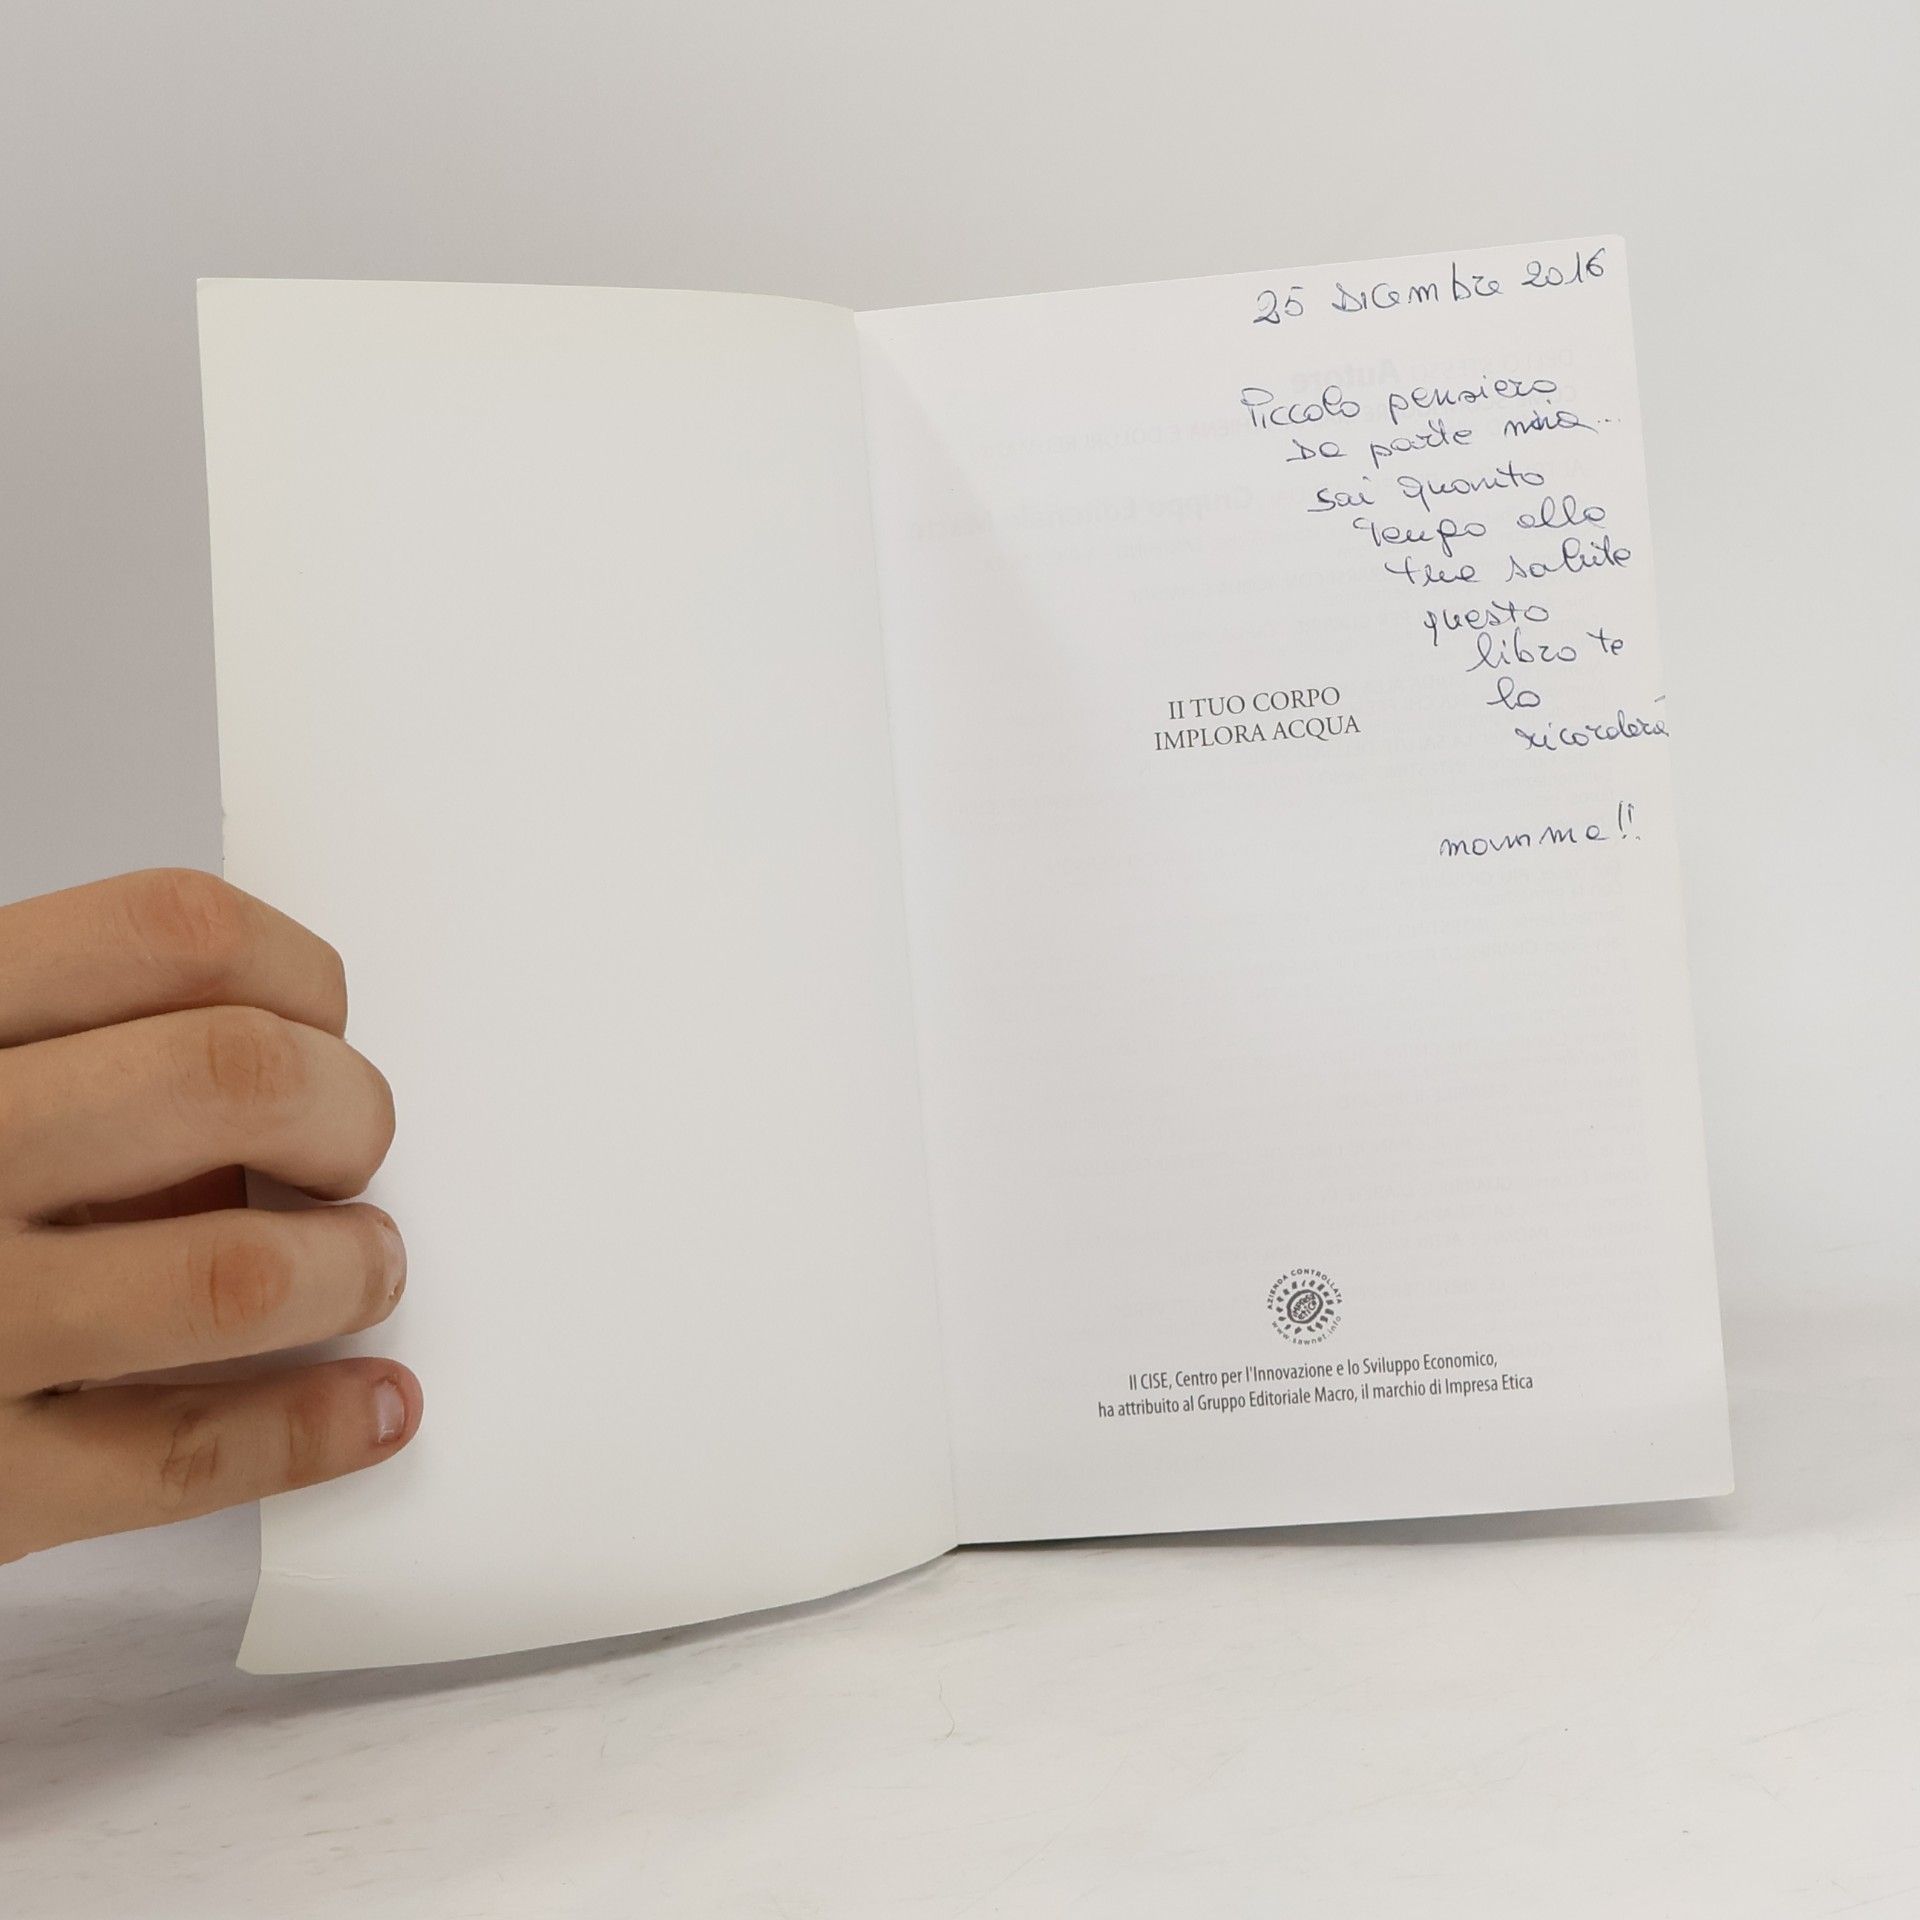 25 Dicembre 2016
Piccolo pensiero
da parte mia...
sai quanto
tengo alla
tua salute
questo
libro te
lo
ricorderà
mamma!!
II TUO CORPO
IMPLORA ACQUA
AZIENDA CONTROLLATA
IMPRESA
ETICA
www.sawnet.info
Il CISE, Centro per l'Innovazione e lo Sviluppo Economico,
ha attribuito al Gruppo Editoriale Macro, il marchio di Impresa Etica